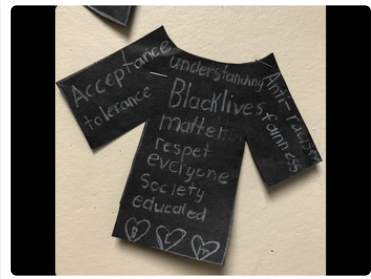 Acceptance
tolerance
understanding
Blacklives
matter
respet
everyone
Society
educated
B L m
Anti-racism
fairness